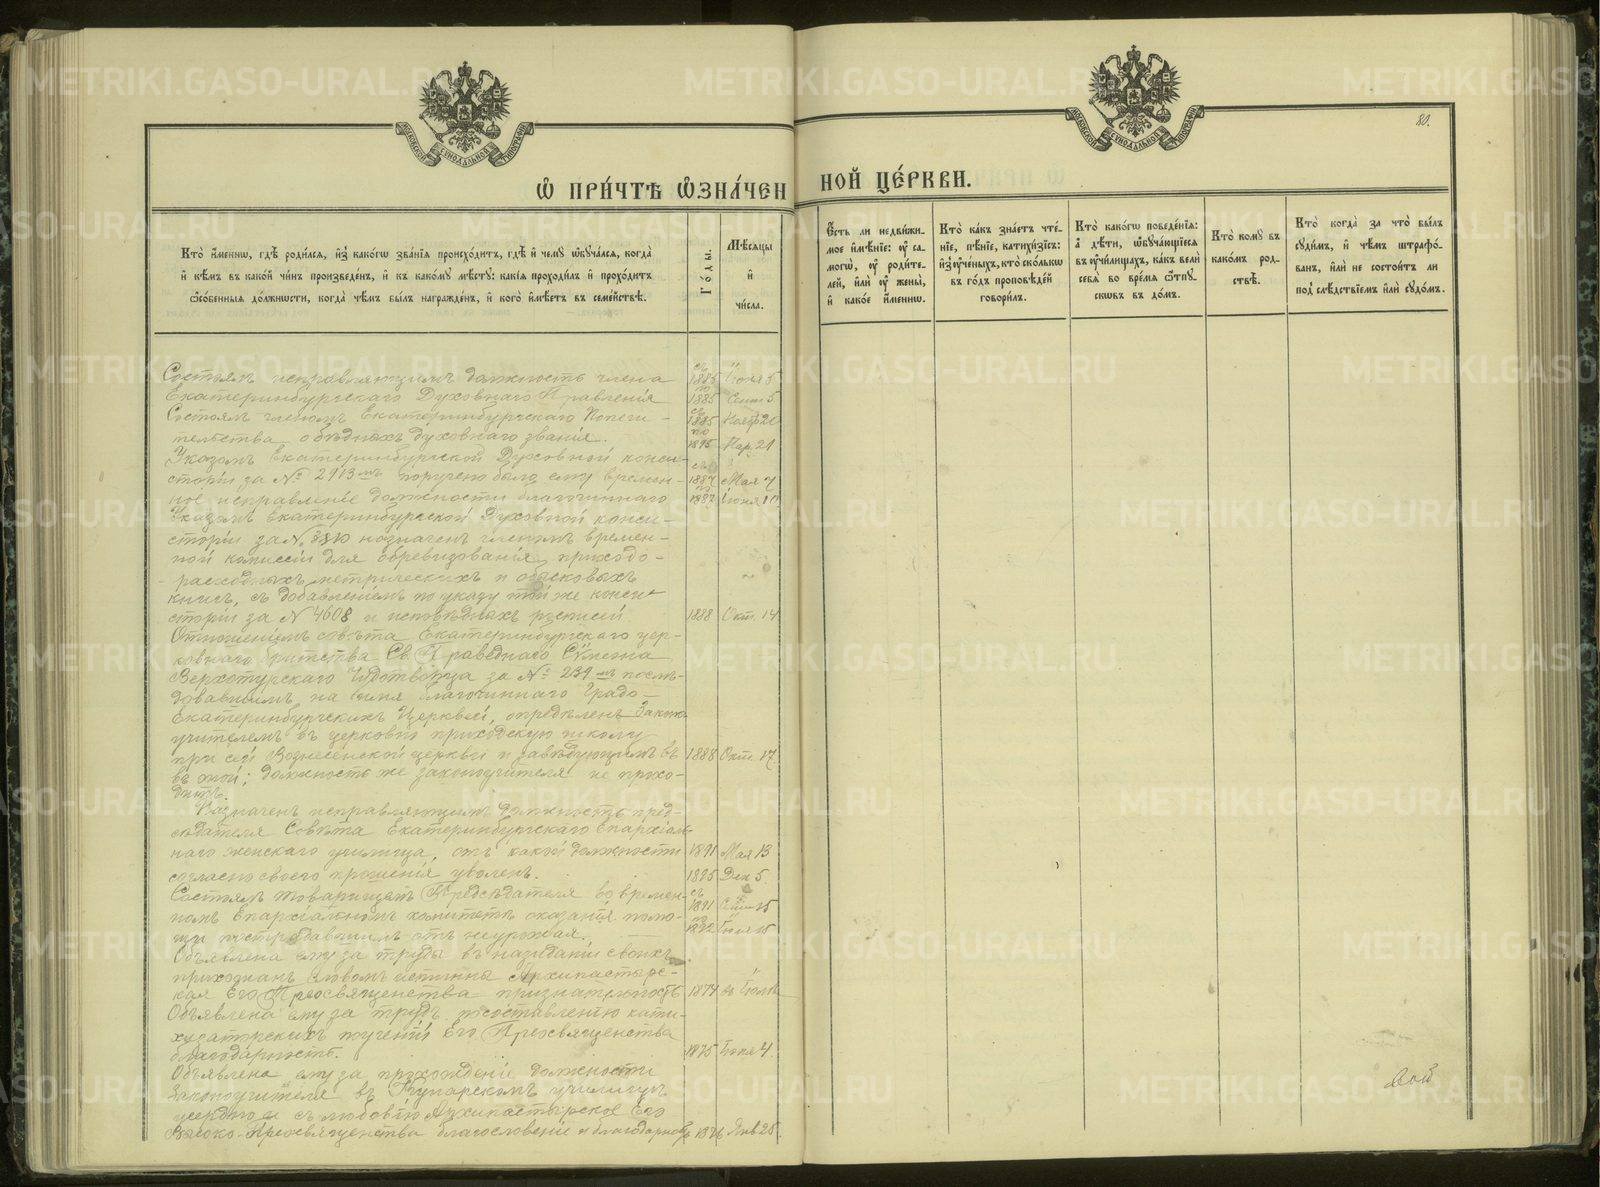 80.
МОСКОВСКОЙ СѴНОДАЛЬНОЙ ТИПОГРАФІИ
МОСКОВСКОЙ СѴНОДАЛЬНОЙ ТИПОГРАФІИ
Ѡ ПРИ́ЧТѢ Ѡ҆ЗНА́ЧЕННОЙ ЦЕ́РКВИ.
Кто̀ и҆́меннѡ, гдѣ̀ роди́лся, и҆з̾ како́гѡ зва́нїѧ происхо́дитъ, гдѣ̀ и҆ чемꙋ̀ ѡ҆бꙋча́лся, когда̀
и҆ кѣ́мъ въ како́й чи́нъ произведе́нъ, и҆ къ како́мꙋ мѣ́стꙋ: какі̑ѧ проходи́лъ и҆ прохо́дитъ
ѻ҆со́бенныѧ до́лжности, когда̀ чѣ́мъ бы́лъ награжде́нъ, и҆ кого̀ и҆мѣ́етъ въ семе́йствѣ.
Го́ды.
Мѣ́сяцы
и҆
чи́сла.
Є҆́сть ли недви́жи-
мое и҆мѣ́нїе: ᲂу҆ са-
могѡ̀, ᲂу҆ роди́те-
лей, и҆лѝ ᲂу҆ жены̀,
и҆ како́е и҆́меннѡ.
Кто̀ ка́къ зна́етъ чте́-
нїе, пѣ́нїе, катихи́зїсъ:
и҆з̾ ᲂу҆че́ныхъ, кто̀ ско́лькѡ
въ го́дъ про́повѣдей
говори́лъ.
Кто̀ како́гѡ поведе́нїѧ:
а҆ дѣ́ти, ѡ҆бꙋча́ющїеся
въ ᲂу҆чи́лищахъ, ка́къ велѝ
себѐ во вре́мя ѿпꙋ-
скѡвъ въ до́мъ.
Кто̀ комꙋ̀ въ
како́мъ род-
ствѣ̀.
Кто̀ когда̀ за что̀ бы́лъ
сꙋди́мъ, и҆ чѣ́мъ штрафо́-
ванъ, и҆лѝ не состои́тъ ли
под̾ слѣ́дствїемъ и҆лѝ сꙋдо́мъ.
Состоялъ исправляющимъ должность члена съ 1885 Іюня 5
Екатеринбургскаго Духовнаго Правленія по 1885 Сент 5
Состоялъ членомъ Екатеринбургскаго Попечи- съ 1885 Нояб 20
тельства о бѣдныхъ духовнаго званія. по 1895 Мар. 21
Указомъ Екатеринбургской Духовной конси-
сторіи за № 2913мъ поручено было ему времен- съ 1887 Мая 7
ное исправленіе должности благочиннаго по 1887 Іюня 10
Указомъ Екатеринбургской Духовной конси-
сторіи за № назначенъ членомъ времен-
ной комиссіи для обревизованія приходо-
расходныхъ, метрическихъ и обысковыхъ
книгъ, съ добавленіемъ по указу той же конси-
сторіи за № 4608 и исповѣдныхъ росписей 1888 Окт. 14
Отношеніемъ совѣта Екатеринбургскаго цер-
ковнаго братства Св. Праведнаго Сѵмеона
Верхотурскаго Чудотворца за № 239мъ послѣ-
довавшимъ на имя благочиннаго Градо-
Екатеринбургскихъ Церквей, опредѣленъ Законо-
учителемъ въ церковно приходскую школу
при сей Вознесенской церкви и завѣдующимъ въ 1888 Окт 17
въ оной; должность же законоучителя не прохо-
дитъ.
Назначенъ исправляющимъ должность пред-
сѣдателя Совѣта Екатеринбургскаго Епархіаль-
наго женскаго училища, отъ какой должности 1891 Мая 13
согласно своего прошенія уволенъ. 1895 Дек 5.
Состоялъ товарищемъ Предсѣдателя во времен- съ 1891 Сент 15
номъ Епархіальномъ комитетѣ оказанія помо- по 1892 Іюля 15
щи пострадавшимъ отъ неурожая.
Объявлена ему за труды въ назиданіи своихъ
прихожанъ словомъ истины Архипастырс-
кая Его Преосвященства признательность 1874 въ Іюлѣ
Объявлена ему за трудъ по составленію кати-
хизаторскихъ поученій Его Преосвященства
благодарность. 1875 Іюня 4.
Объявлено ему за прохожденіе должности
Законоучителя въ училищѣ
усердное и съ любовію Архипастырское Его
Высоко-Преосвященства благословеніе и благодарность 1876 Янв 25.
METRIKI.GASO-URAL.RU